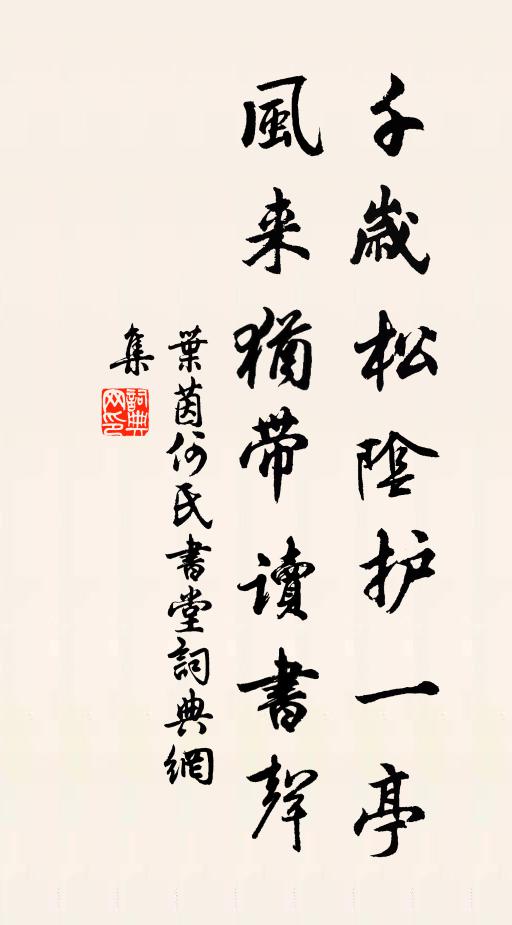 千歲松陰护一亭
風来猶帶讀書聲
葉茵何氏書堂詞典網
集
詞典网印